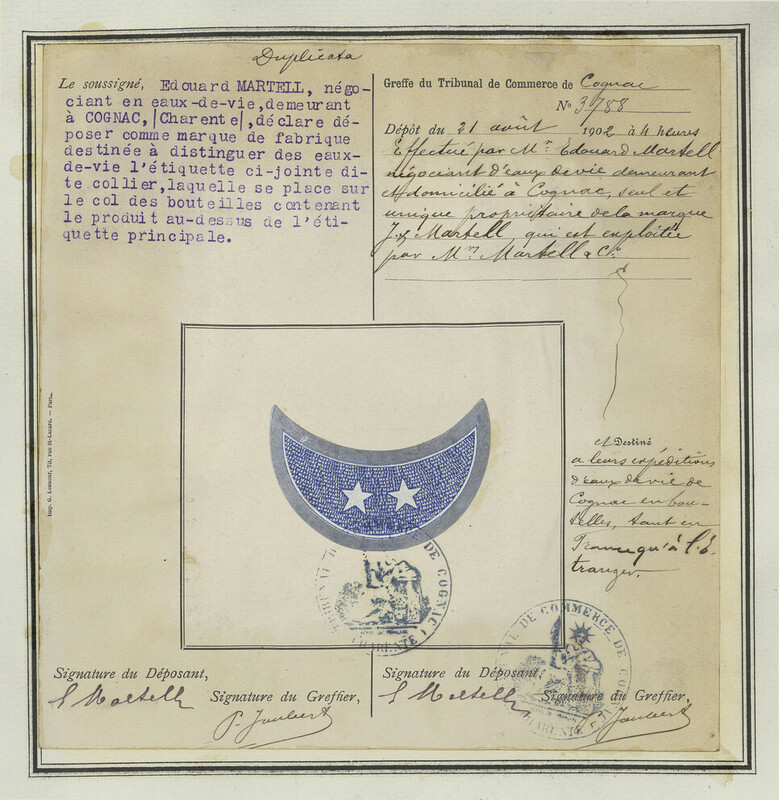 Duplicata
Le soussigné, Edouard MARTELL, négo-
ciant en eaux-de-vie,demeurant
à COGNAC,|Charente|,déclare dé-
poser comme marque de fabrique
destinée à distinguer des eaux-
de-vie l'étiquette ci-jointe di-
te collier,laquelle se place sur
le col des bouteilles contenant
le produit au-dessus de l'éti-
quette principale.
Greffe du Tribunal de Commerce de Cognac
No 3788
Dépôt du 21 août 1902 à 4 heures
Effectué par Mr Edouard Martell
négociant d'eaux de vie demeurant
et domicilié à Cognac, seul et
unique propriétaire de la marque
J. & Martell qui est exploitée
par Mrs Martell & Cie
et Destiné
a leurs expéditions
d'eaux de vie de
Cognac en bou-
teilles, tant en
France qu'à l'é-
tranger.
Imp. G. Lesueur, 72, rue St-Lazare. — Paris.
DE COGNAC
CHARENTE
DE COMMERCE DE
CHARENTE
Signature du Déposant,
E Martell
Signature du Greffier,
P. Joubert
Signature du Déposant,
E Martell
Signature du Greffier,
P. Joubert